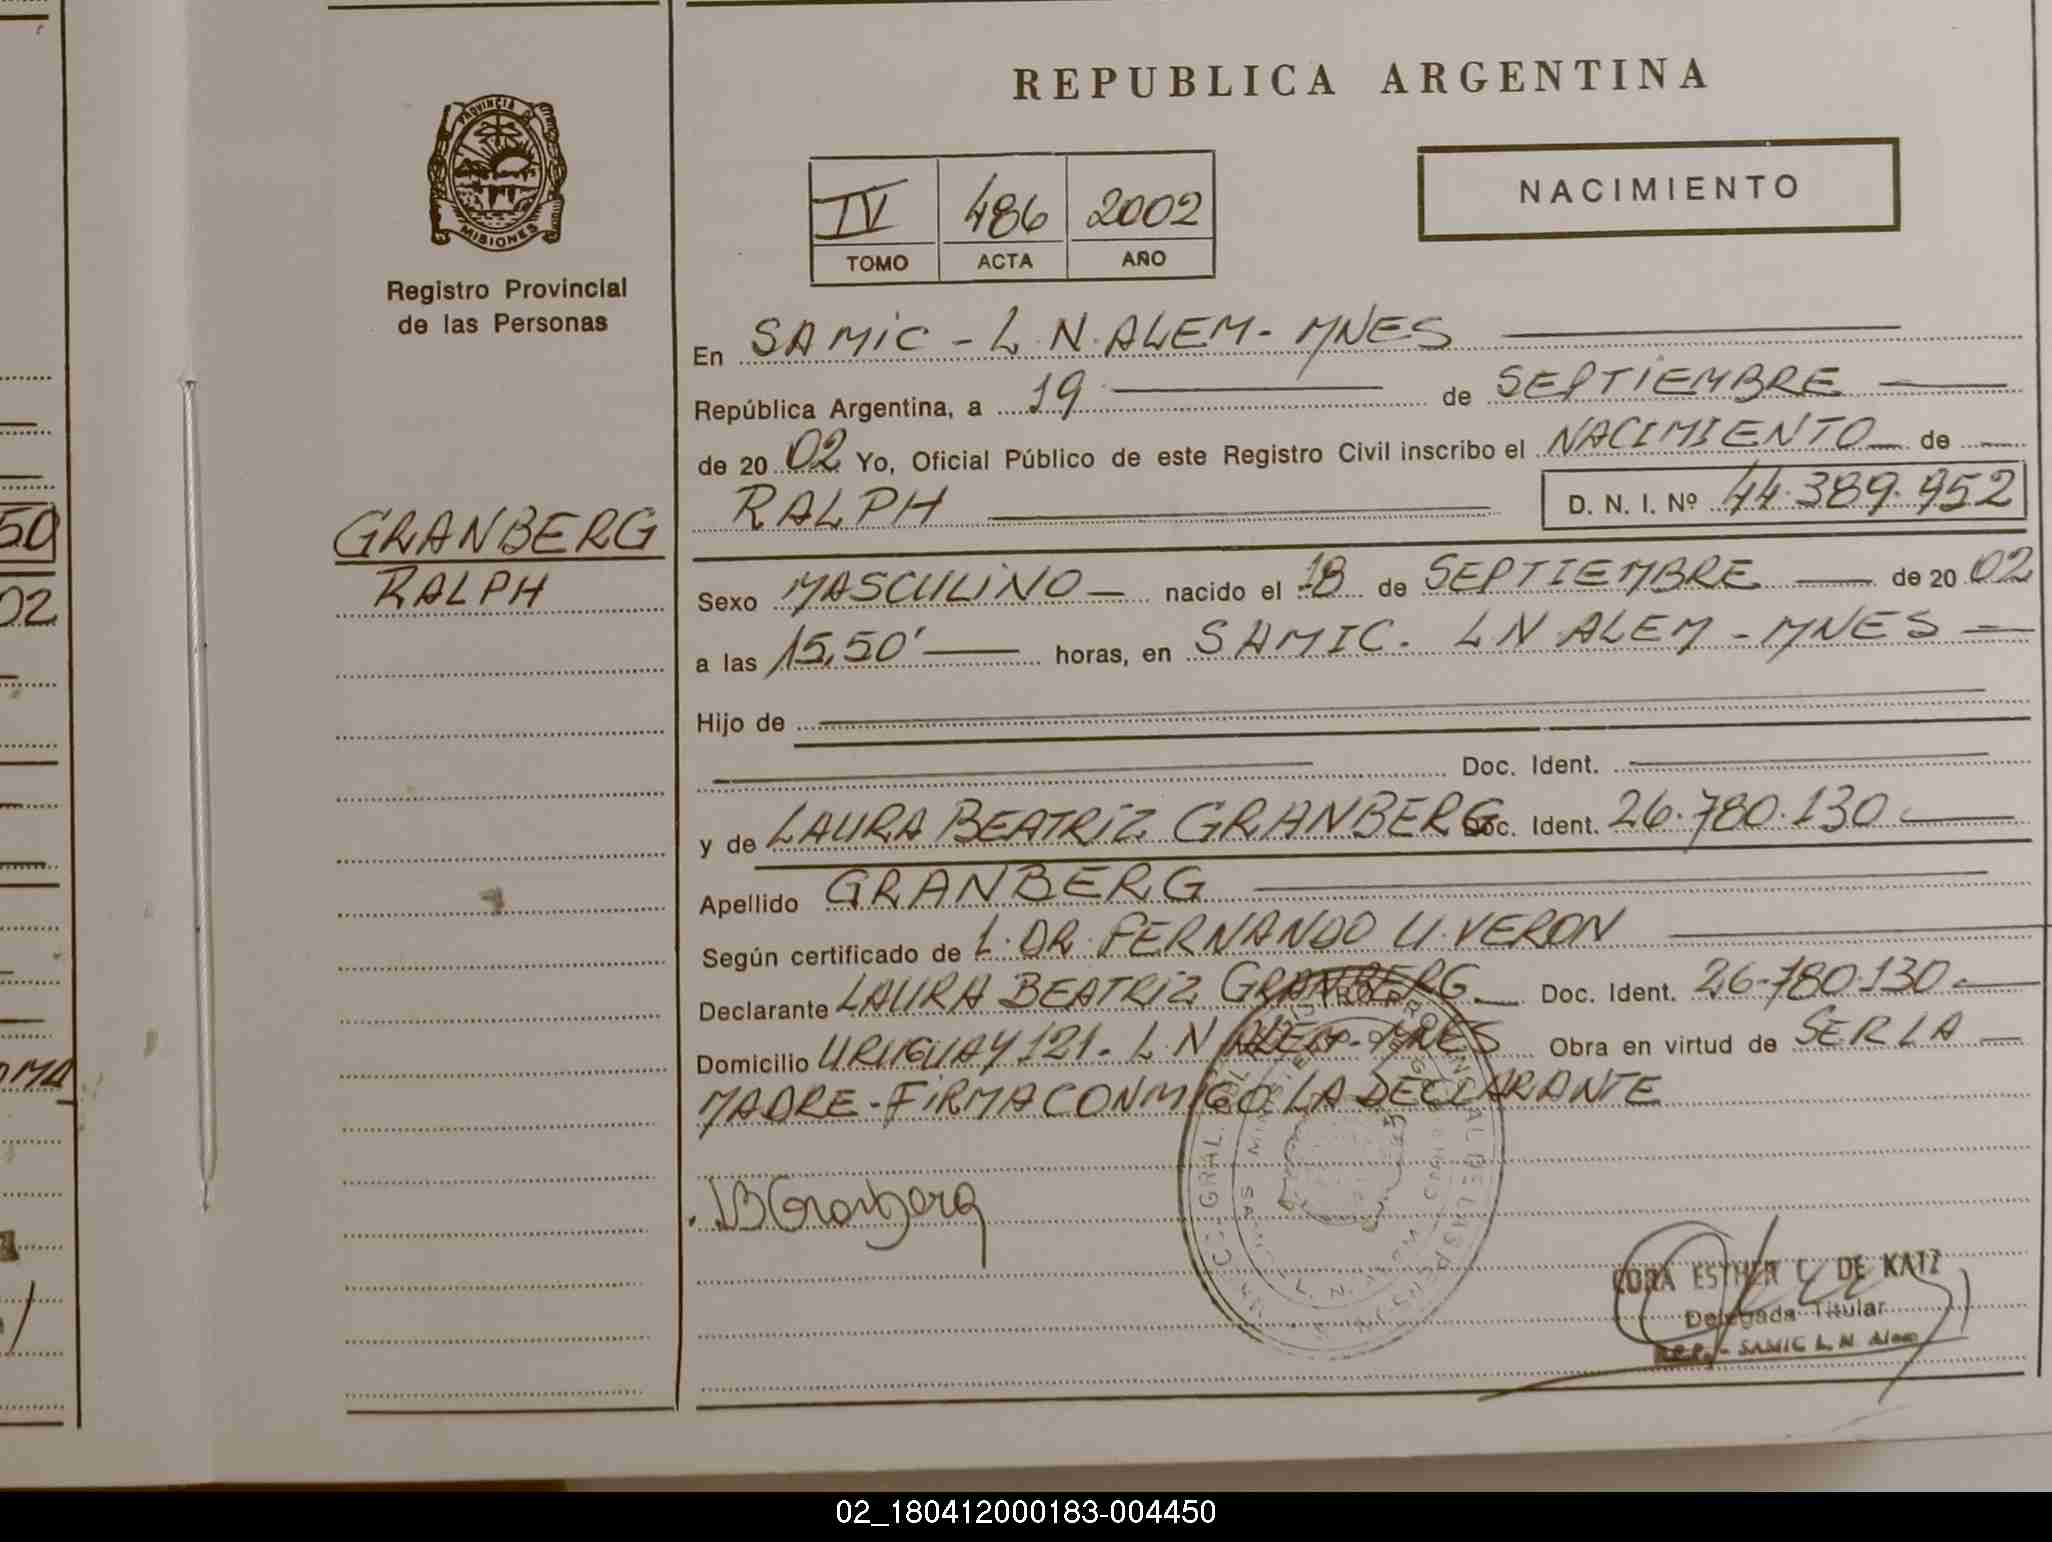 REPUBLICA ARGENTINA
PROVINCIA
MISIONES
Registro Provincial
de las Personas
IV 486 2002
TOMO ACTA AÑO
NACIMIENTO
En SAMIC - L.N. ALEM - MNES
República Argentina, a 19 de SEPTIEMBRE
de 2002 Yo, Oficial Público de este Registro Civil inscribo el NACIMIENTO de
RALPH D. N. I. Nº 44.389.952
GRANBERG
RALPH
Sexo MASCULINO nacido el 18 de SEPTIEMBRE de 2002
a las 15,50' horas, en SAMIC. L N ALEM - MNES
Hijo de
Doc. Ident.
y de LAURA BEATRIZ GRANBERG Doc. Ident. 26.780.130
Apellido GRANBERG
Según certificado de L. DR. FERNANDO U. VERON
Declarante LAURA BEATRIZ GRANBERG Doc. Ident. 26.780.130
Domicilio URUGUAY 121. L N ALEM - MNES Obra en virtud de SER LA
MADRE - FIRMA CONMIGO LA DECLARANTE
LBGranberg
CORA ESTHER C. DE KATZ
Delegada Titular
R.P.P. - SAMIC L. N. Alem
50
02
02_180412000183-004450